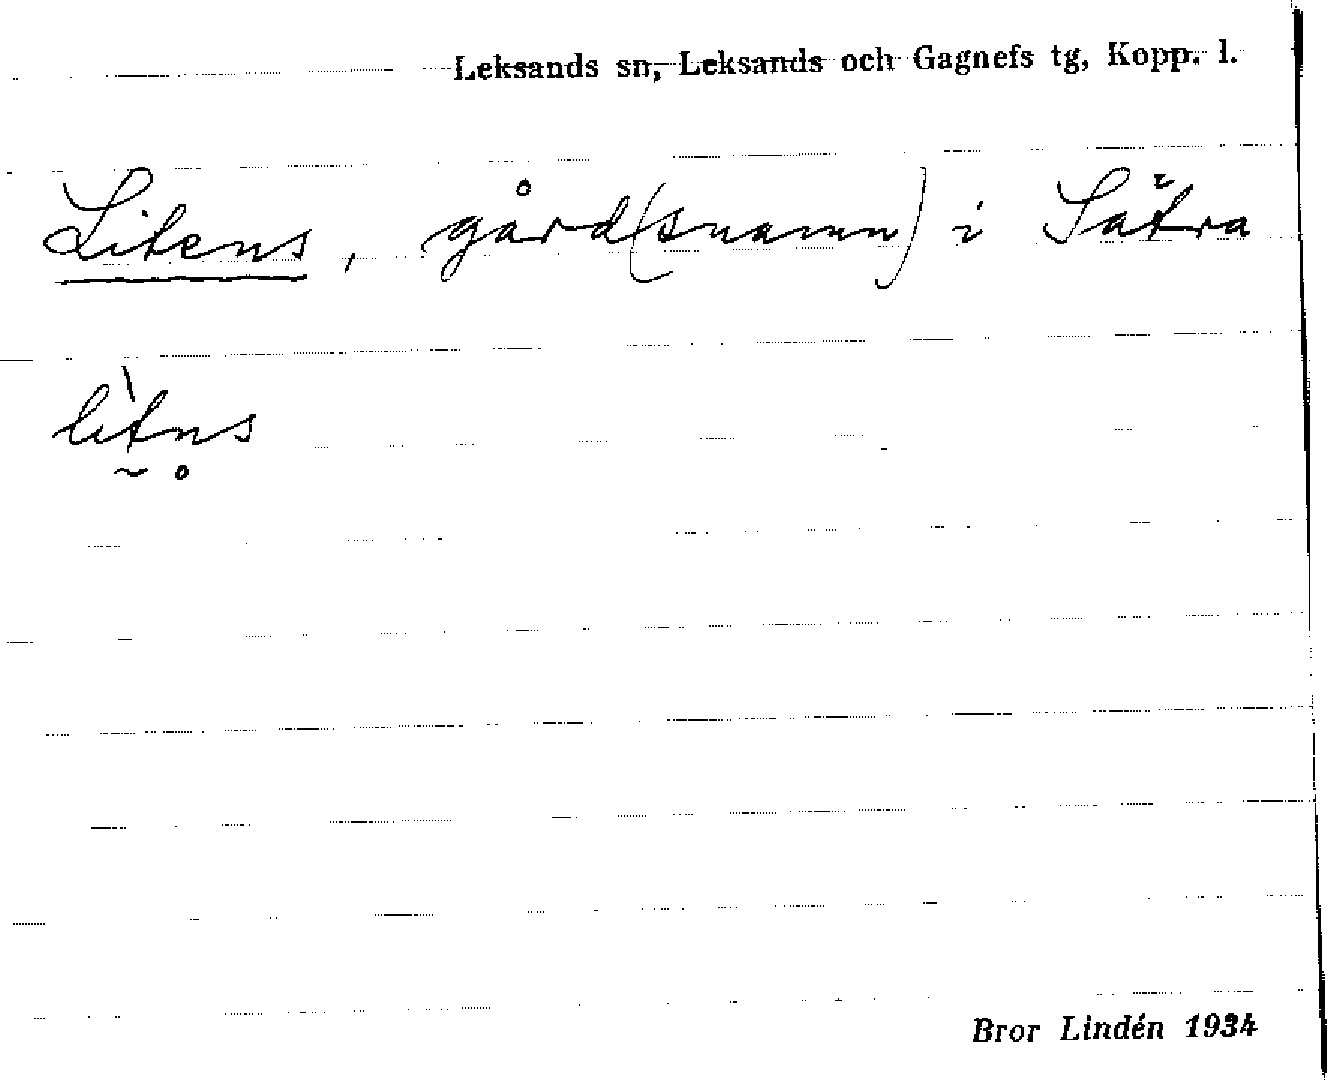 Leksands sn, Leksands och Gagnefs tg, Kopp. l.
Litens, gård(snamn) i Sätra
lìt̰ns̥
Bror Lindén 1934